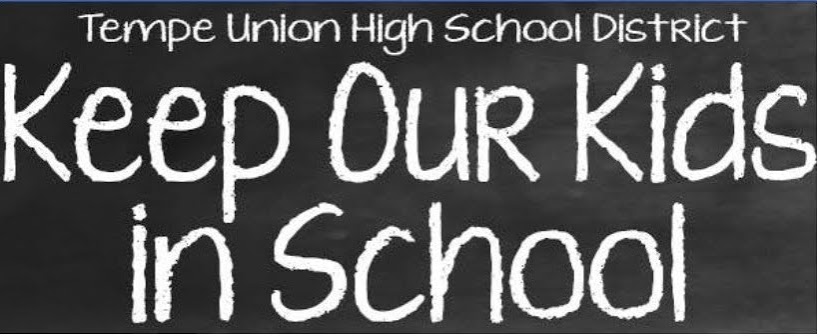 Tempe Union High School District
Keep Our Kids
in School